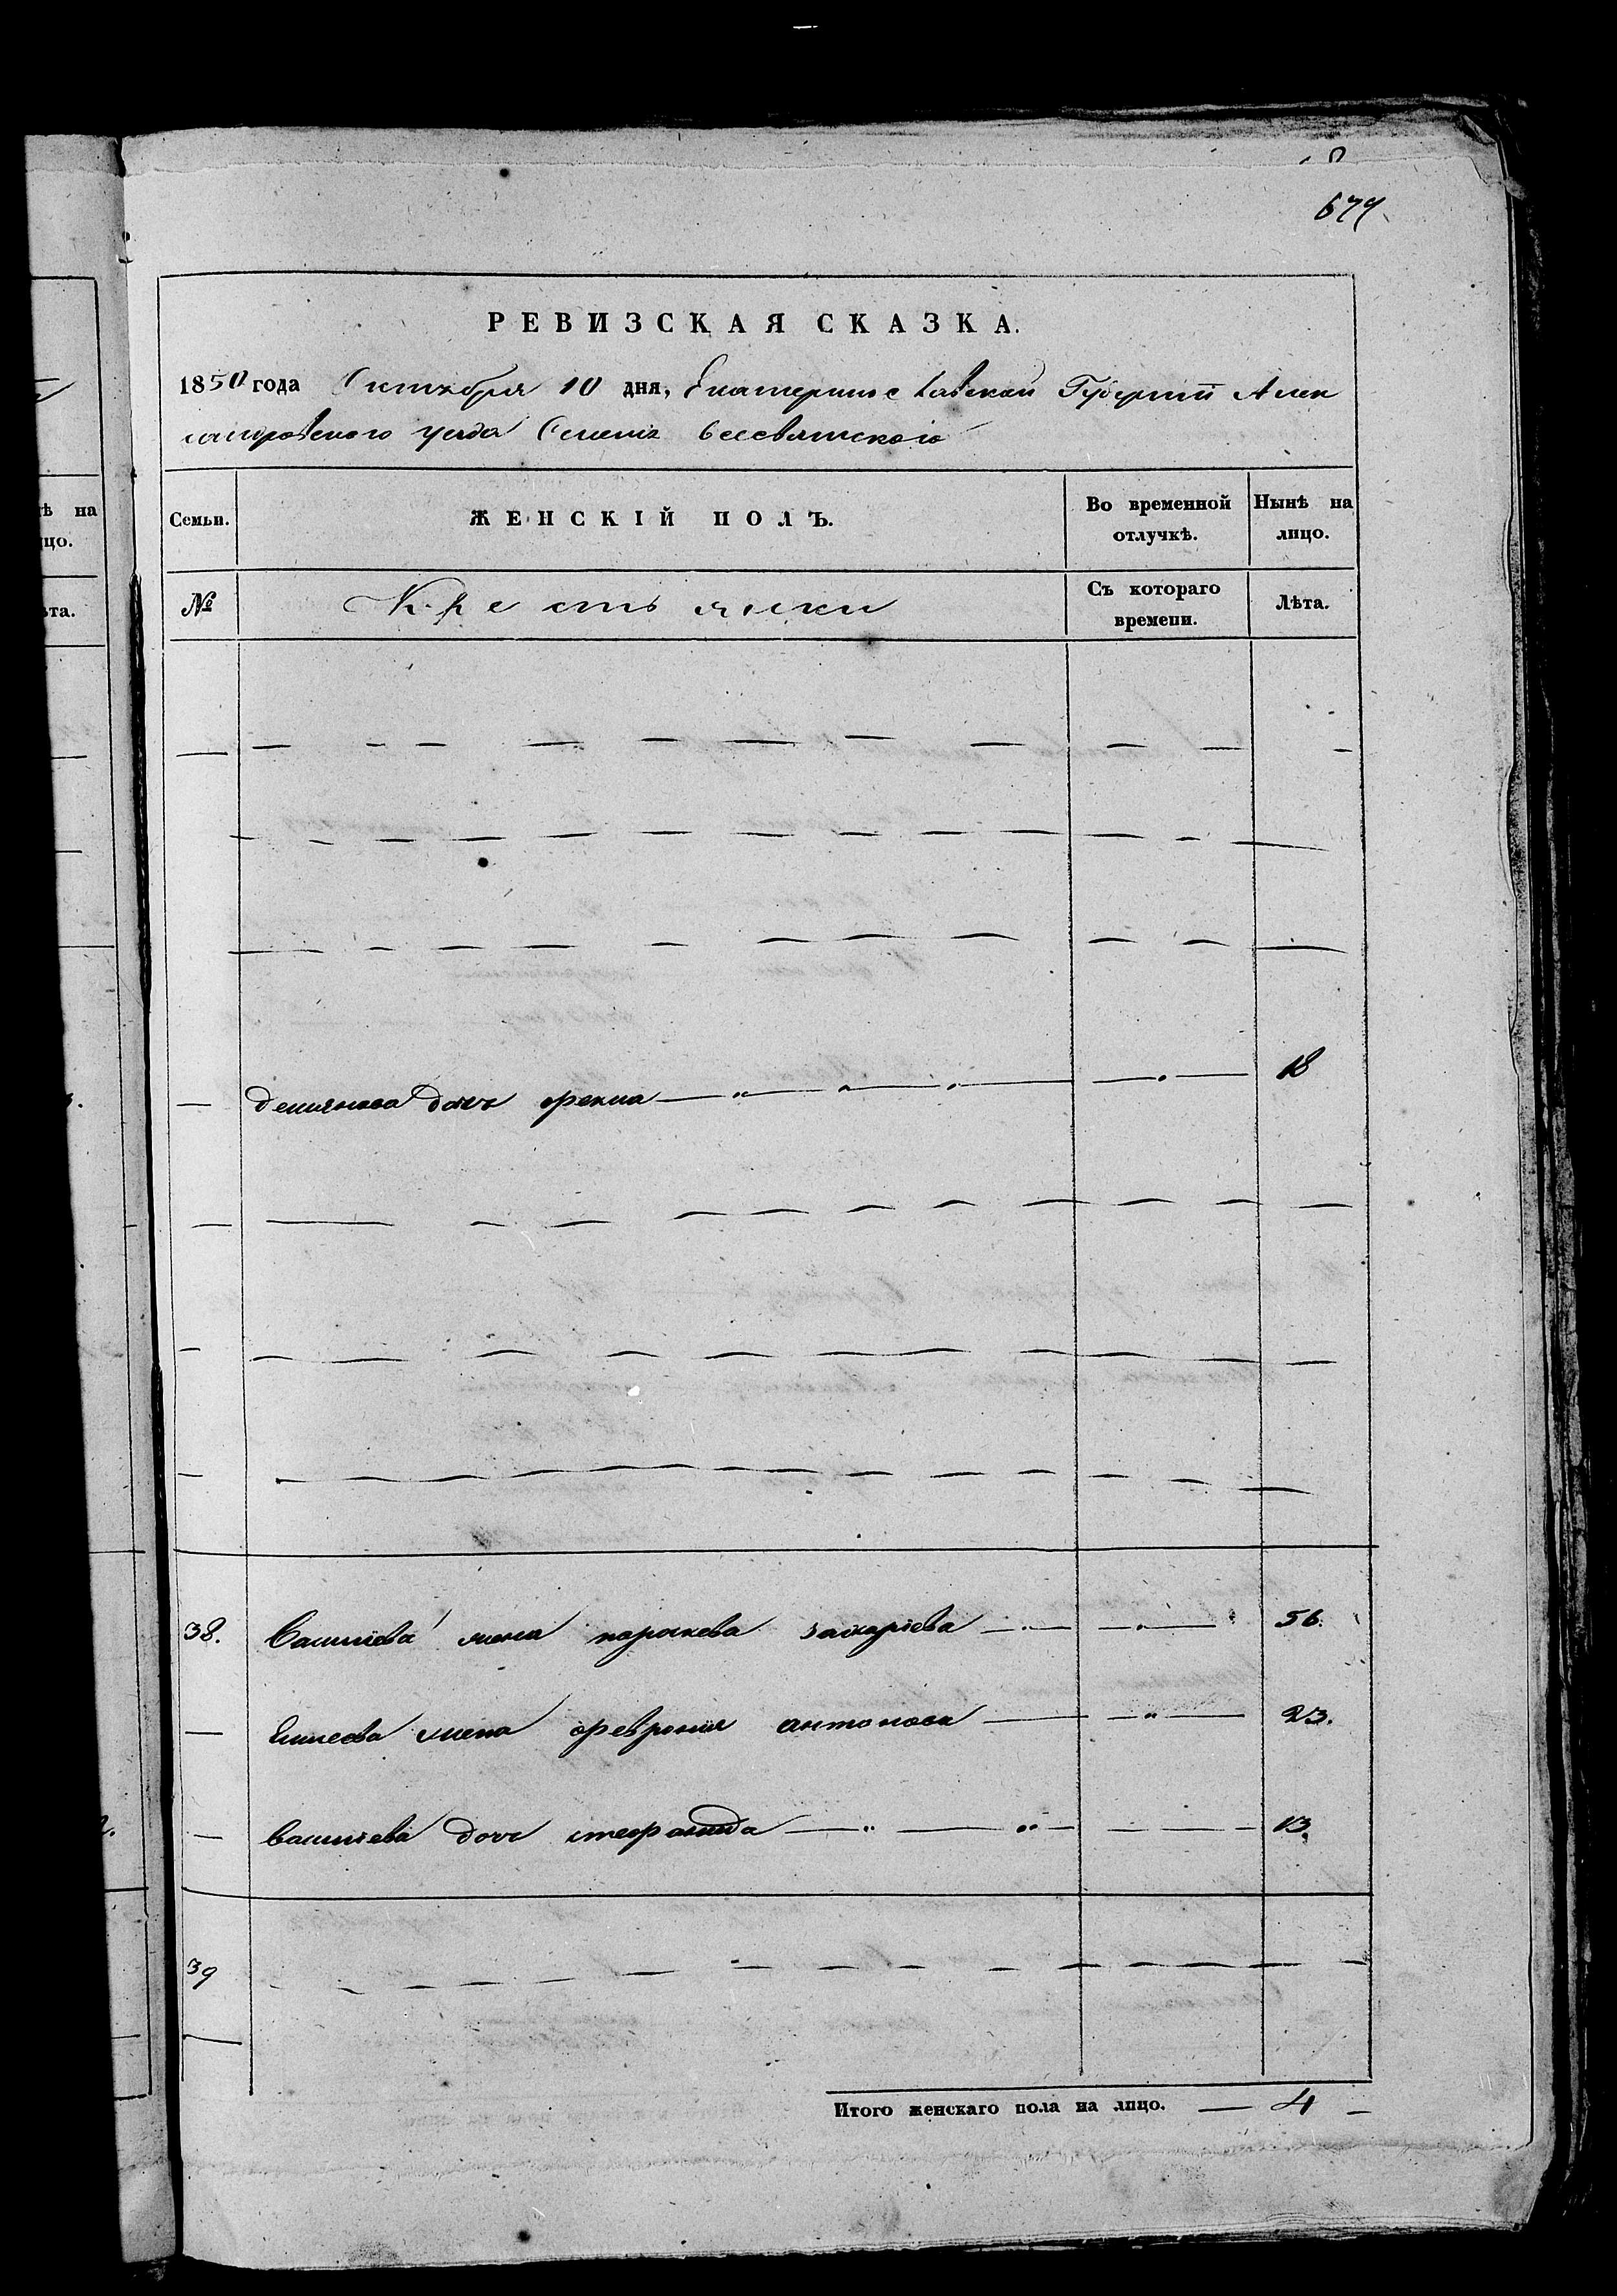 679
РЕВИЗСКАЯ СКАЗКА.
1850 года Октября 10 дня, Екатеринославской Губернии Алек
сандровского уезда Селения всесвятского
Семьи. ЖЕНСКІЙ ПОЛЪ. Во временной отлучкѣ. Нынѣ на лицо.
№ Крестьянки Съ котораго времени. Лѣта.
— демянова дочь фекла — 18
38. Василіева жена параскева захаріева — 56.
— Елисеева жена феврония антонова — 23.
— василіева дочь стефанида — 13.
39
Итого женскаго пола на лицо. — 4 —